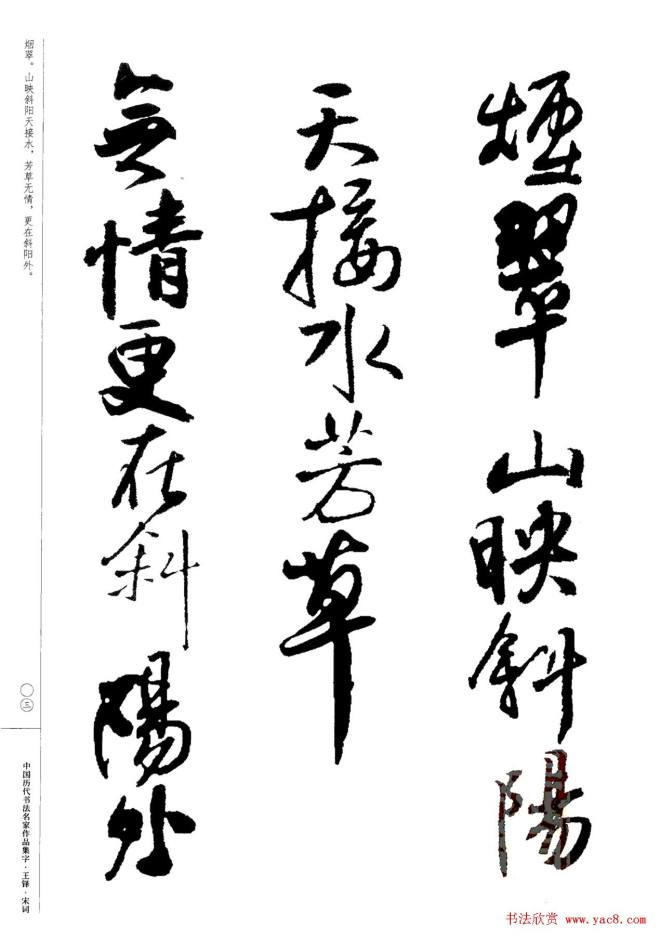 煙翠山映斜陽
天接水芳草
無情更在斜陽外
烟翠。山映斜阳天接水，芳草无情，更在斜阳外。
〇三
中国历代书法名家作品集字·王铎·宋词
书法欣赏 www.yac8.com